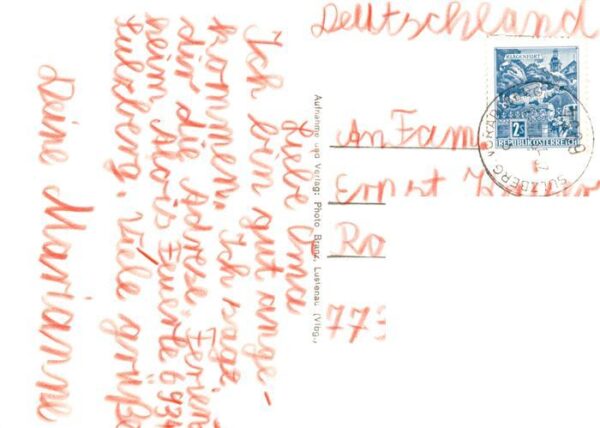 Deutschland
KLAGENFURT
2S
REPUBLIK ÖSTERREICH
SULZBERG
An Fam
Ernst
Ro
773
Aufnahme und Verlag: Photo Branz, Lustenau (Vlbg.,
Liebe Oma
Ich bin gut ange-
kommen. Ich sage
dir die Adrese. Ferien
heim Alois 6934
Sulzberg. Viele grüße
Deine Marianne